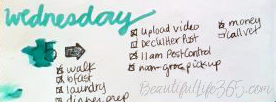 wednesday
walk
bfast
laundry
dinner prep
upload video
Declutter Post
11am Post Control
non-groc pickup
money
call vet
Beautifullife365.com